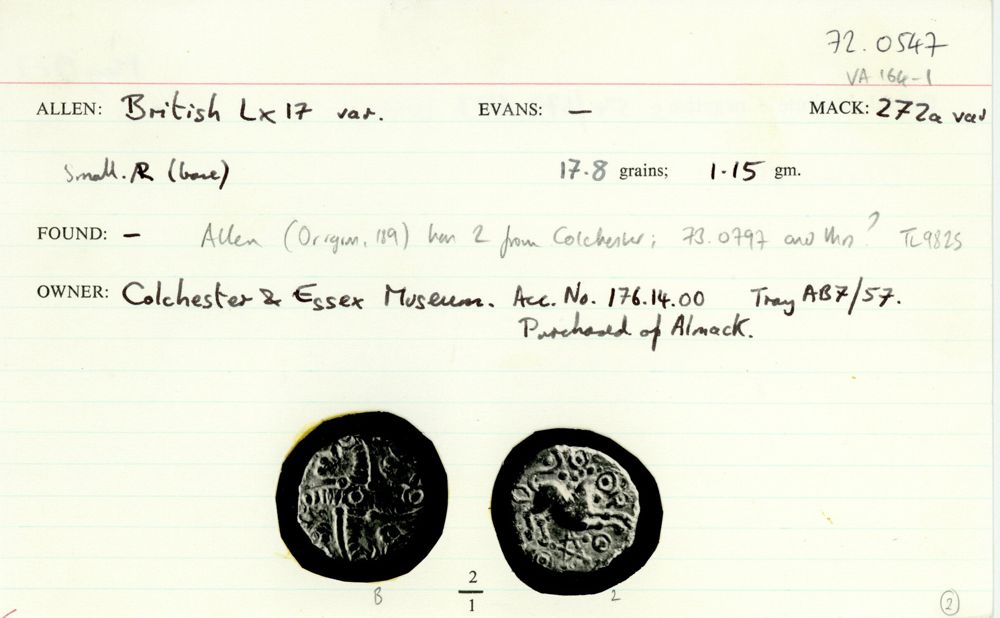 72.0547
VA 164-1
ALLEN: British Lx 17 var. EVANS: — MACK: 272a var
Small. AR (base) 17.8 grains; 1.15 gm.
FOUND: — Allen (Origin, 119) has 2 from Colchester; 73.0797 and this? TL9825
OWNER: Colchester & Essex Museum. Acc. No. 176.14.00 Tray AB7/57.
Purchased of Almack.
2
1
B 2
2